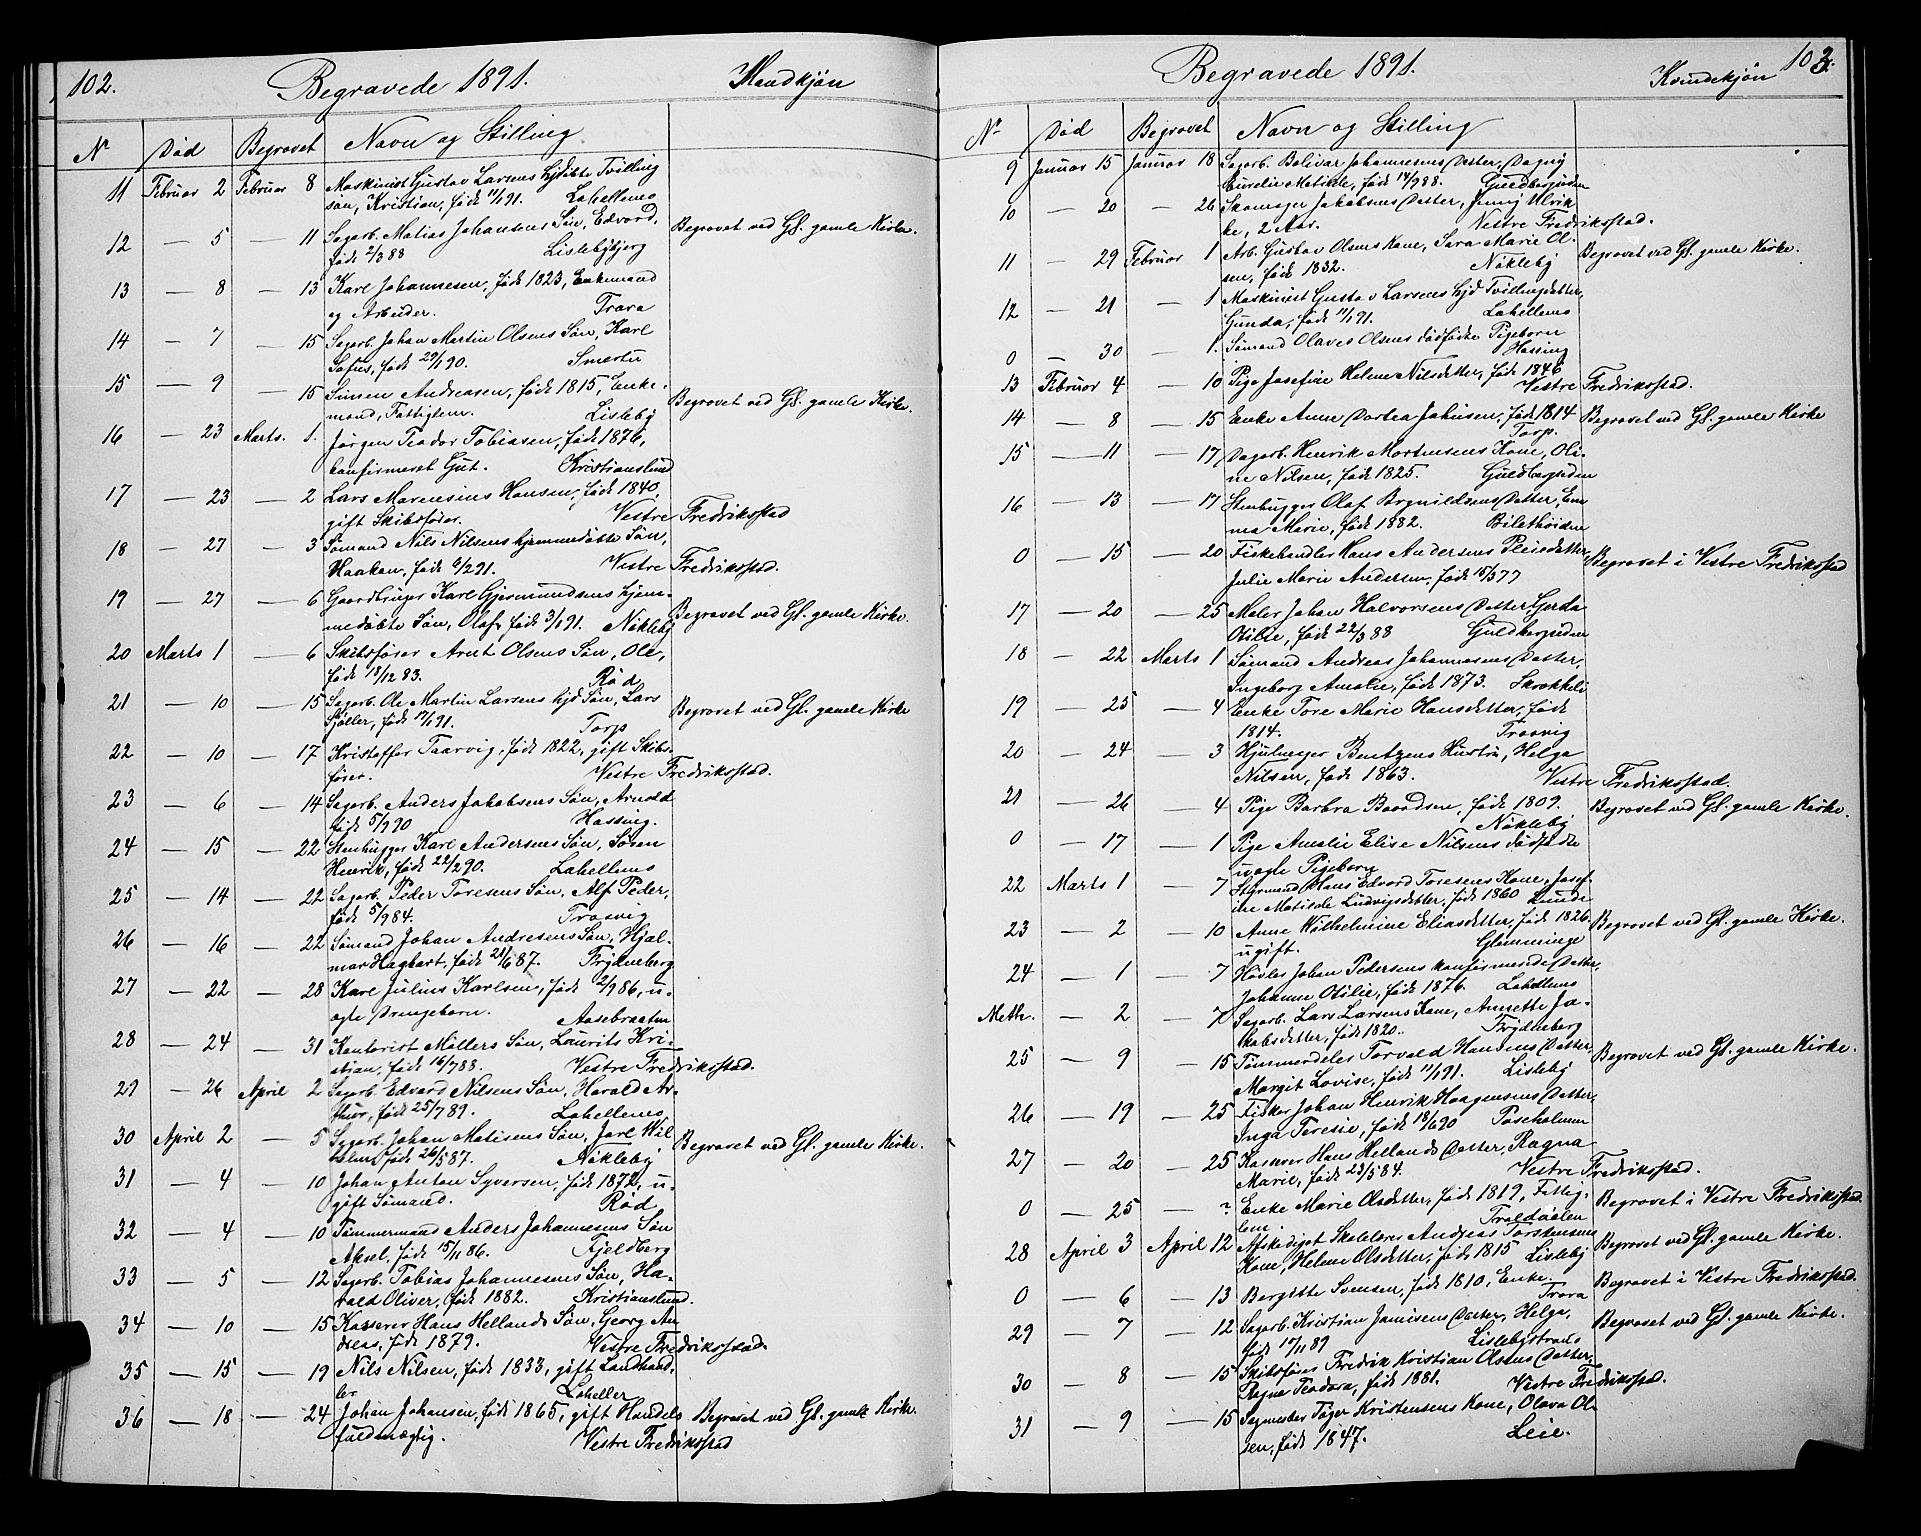 102.
Begravede 1891.
Mandkjøn
No
Død
Begravet
Navn og Stilling
11 Februar 2 Februar 8 Maskinist Gustav Larsens hjdøbte Tvilling
søn, Kristian, født 11/1 91. Lahellens
12 — 5 — 11 Sagarb. Matias Johansens Søn, Edvard, Begravet ved Gl. gamle Kirke.
født 2/3 88 Lislebybjerg
13 — 8 — 13 Karl Johannesen, født 1823, Enkemand
og Arbeider. Trara
14 — 7 — 15 Sagarb. Johan Martin Olsens Søn, Karl
Sofus, født 29/1 90. Smertu
15 — 9 — 15 Simen Andreasen, født 1815, Enke-
mand, Fattiglem. Lisleby Begravet ved Gl. gamle Kirke.
16 — 23 Marts. 1. Jørgen Teodor Tobiasen, født 1876,
konfirmeret Gut. Kristianslund
17 — 23 — 2 Lars Marensius Hansen, født 1840,
gift Skibsfører. Vestre Fredriksstad
18 — 27 — 3 Sømand Nils Nilsens hjemmedøbte Søn,
Haakon, født 6/2 91. Vestre Fredriksstad.
19 — 27 — 6 Gaardbruger Karl Gjermundsens hjem-
medøbte Søn, Olaf, født 3/1 91. Nøkleby Begravet ved Gl. gamle Kirke.
20 Marts 1 — 6 Skibsfører Arnt Olsens Søn, Ole,
født 18/12 83. Rød
21 — 10 — 15 Sagarb. Ole Martin Larsens hjd Søn, Lars
født 17/1 91. Torp Begravet ved Gl. gamle Kirke
22 — 10 — 17 Kristoffer Taarvig, født 1822, gift Skibs-
fører. Vestre Fredriksstad.
23 — 6 — 14 Sagarb. Anders Jakobsens Søn, Arnold
født 5/9 90 Hassing.
24 — 15 — 22 Stenhugger Karl Andersens Søn, Søren
Henrik, født 22/2 90. Lahellens
25 — 14 — 22 Sagarb. Peder Toresens Søn, Alf Peder,
født 5/9 84. Trosvig
26 — 16 — 22 Sømand Johan Andresens Søn, Hjal-
mar Hagbart, født 21/6 87. Frydenberg
27 — 22 — 28 Karl Julius Karlsen, født 2/9 86, u-
ægte Drengebarn. Aasebraaten
28 — 24 — 31 Kontorist Møllers Søn, Laurits Kri-
stian, født 16/7 88. Vestre Fredriksstad.
29 — 26 April 2 Sagarb. Edvard Nilsens Søn, Harald Ar-
thur, født 25/7 89. Lahellens
30 April 2 — 5 Sagarb. Johan Matisens Søn, Jarl Wil
helm, født 26/5 87. Nøkleby Begravet ved Gl. gamle Kirke.
31 — 4 — 10 Johan Anton Syversen, født 1872, u-
gift Sømand. Rød
32 — 4 — 10 Tømmermand Anders Johannesens Søn
Aksel, født 15/11 86. Fjeldberg
33 — 5 — 12 Sagarb. Tobias Johannesens Søn, Ha-
rald Oliver, født 1882. Kristianslund.
34 — 10 — 15 Kasserer Hans Hellands Søn, Georg An-
dreas, født 1879. Vestre Fredriksstad.
35 — 15 — 19 Nils Nilsen, født 1833, gift Landhand-
ler Laheller
36 — 18 — 24 Johan Johansen, født 1865, gift Handels Begravet ved Gl. gamle Kirke.
fuldmægtig. Vestre Fredriksstad
Begravede 1891.
Kvindekjøn
103.
Nr
Død
Begravet
Navn og Stilling
9 Januar 15 Januar 18 Sagarb. Bolivar Johannesens Datter, Dagny
Aurelie Matilde, født 14/9 88. Guldbergsiden
10 — 20 — 26 Skomager Jakobsens Datter, Jenny Ulrik
ke, 2 Aar. Vestre Fredriksstad.
11 — 29 Februar 1 Arb. Gustav Olsens Kone, Sara Marie Ol-
sen, født 1832. Nøkleby Begravet ved Gl. gamle Kirke.
12 — 21 — 1 Maskinist Gustav Larsens hjd Tvillingdatter,
Gunda, født 11/1 91. Lahellens
0 — 30 — 1. Sømand Olaves Olsens dødfødte Pigebarn
Hassing
13 Februar 4 — 10 Pige Josefine Helene Nilsdatter, født 1846
Vestre Fredriksstad.
14 — 8 — 15 Enke Anne Dortea Johnsen, født 1814 Begravet ved Gl. gamle Kirke
Torp.
15 — 11 — 17 Dagarb. Henrik Mortensens Kone, Oli-
ne Nilsen, født 1825. Guldbergsiden
16 — 13 — 17 Stenhugger Olaf Brynildsens Datter, Em
ma Marie, født 1882. Bilethviden
0 — 15 — 20 Fiskehandler Hans Andersens Pleiedatter,
Julie Marie Andersen, født 15/3 77 Begravet i Vestre Fredriksstad
17 — 20 — 25 Maler Johan Halvorsens Datter Gerda
Otilie, født 22/3 88 Guldbergsiden
18 — 22 Marts 1 Sømand Andreas Johannesens Datter,
Ingeborg Amalie, født 1873. Skrokkeli
19 — 25 — 4 Enke Tore Marie Hansdatter, født
1814. Trosvig
20 — 24 — 3 Hjulmager Bentzens Hustru, Helga
Nilsen, født 1863. Vestre Fredriksstad.
21 — 26 — 4 Pige Barbra Baardsen, født 1809. Begravet ved Gl. gamle Kirke.
Nøkleby
0 — 17 — 1 Pige Amalie Elise Nilsens dødfødte
uægte Pigebarn
22 Marts 1 — 7 Styrmand Hans Edvard Toresens Kone, Josef-
ine Matilde Ludvigsdatter, født 1860 Lunde
23 — 2 — 10 Anne Wilhelmine Eliasdatter, født 1826. Begravet ved Gl. gamle Kirke.
ugift. Glemminge
24 — 1 — 7 Høvler Johan Pedersens konfirmerede Datter,
Johanne Otilie, født 1876. Lahellens
Meth. — 2 — 7 Sagarb. Lars Larsens Kone, Annette Ja-
kobsdatter, født 1820. Frydenberg
25 — 9 — 15 Tømmerdeler Torvald Hansens Datter Begravet ved Gl. gamle Kirke.
Margit Lovise, født 11/1 91. Lisleby
26 — 19 — 25 Fisker Johan Henrik Haagensens Datter
Inga Teresie, født 18/6 90 Paseholmen
27 — 20 — 25 Kasserer Hans Hellands Datter, Ragna
Marie, født 23/5 84. Vestre Fredriksstad.
0 — 25 — ? Enke Marie Olsdatter, født 1819, Fattig- Begravet i Vestre Fredriksstad.
lem. Traldaalen
28 April 3 April 12 Afskediget Skolelærer Andreas Torstensens Begravet ved Gl. gamle Kirke.
Kone, Helene Olsdatter, født 1815 Lisleby
0 — 6 — 13 Bergitte Svensen, født 1810, Enke. Begravet i Vestre Fredriksstad.
Trara
29 — 7 — 12 Sagarb. Kristian Jamisens Datter, Helga, Begravet ved Gl. gamle Kirke.
født 17/11 89 Lislebystrand
30 — 8 — 15 Skibsfører Fredrik Kristian Olsens Datter,
Ragna Teodora, født 1881. Vestre Fredriksstad.
31 — 9 — 15 Sagmester Tøger Kristensens Kone, Olava Ol-
sen, født 1847. Leie.